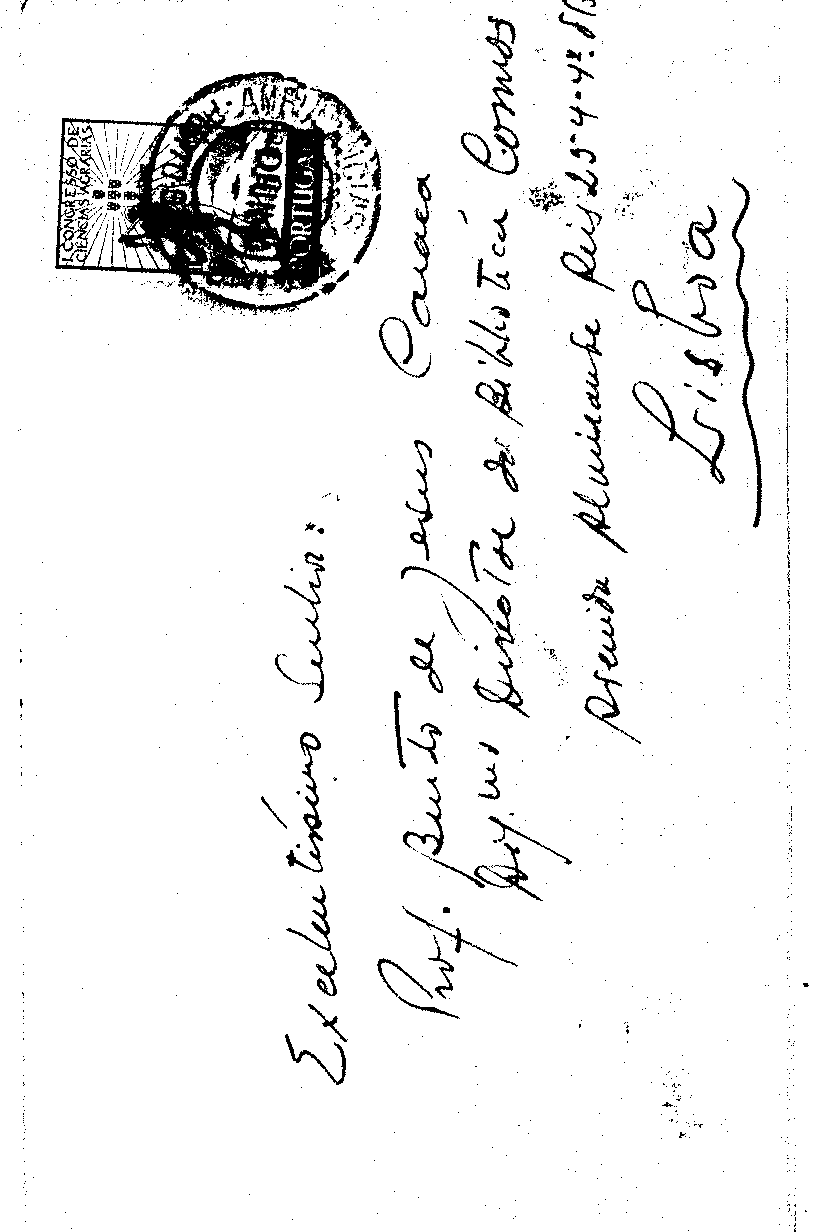 I CONGRESSO DE
CIÊNCIAS AGRÁRIAS
PORTUGAL
Excelentíssimo Senhor:
Prof. Bento de Jesus Caraça
Digno Director da Biblioteca Cosmos
Avenida Almirante Reis 25-4º
Lisboa